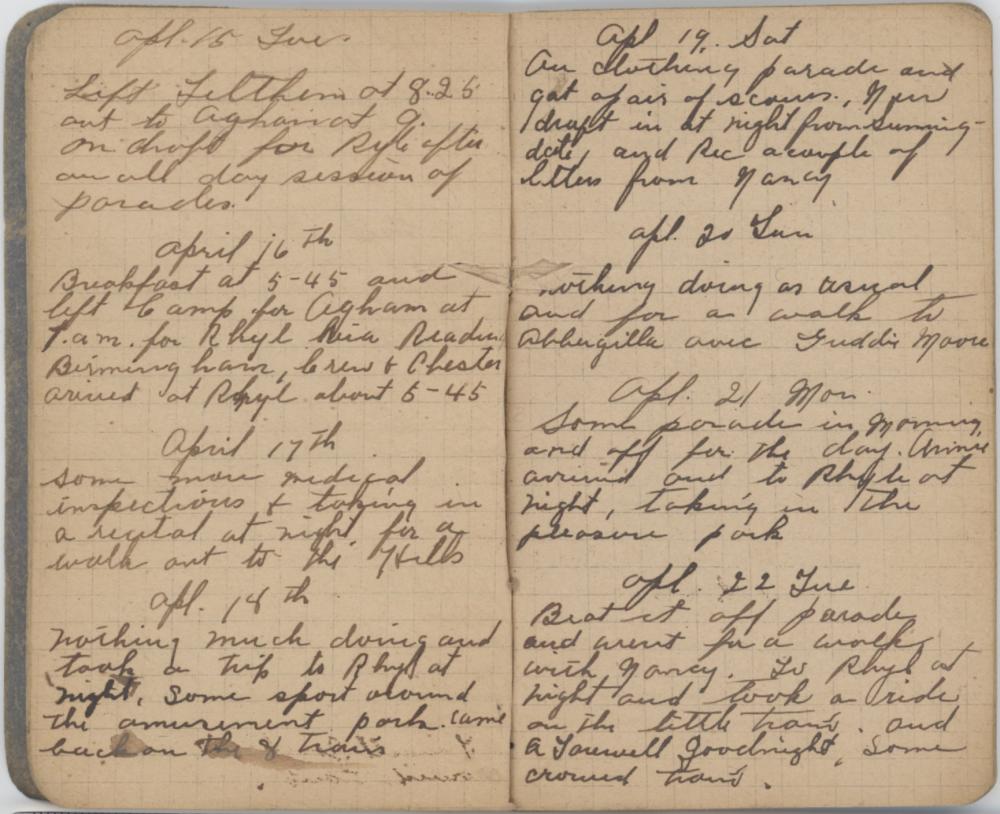 Apl. 15 Tue.
Left Feltham at 8.25
out to Agham at 9.
on draft for Ryle after
an all day session of
parades.
April 16th
Breakfast at 5-45 and
left Camp for Agham at
7.a.m. for Rhyl Via Reading
Birmingham, Crew & Chester
arived at Rhyl about 5-45
April 17th
some more medical
inspections & taking in
a recital at night, for a
walk out to the Hills
Apl. 18th
Nothing much doing and
took a trip to Rhyl at
night, some sport around
the amusement park. Came
back on the 8 train
Apl 19. Sat
An clothing parade and
got a pair of
draft in at night from Sunning-
dale, and Rec a couple of
letters from Nancy
Apl. 20 Sun
Nothing doing as usual
and for a walk to
Abbergilla avec Moore
Apl. 21 Mon.
Some parade in Morning,
and off for the day.
around and to Rhyle at
night, taking in the
pleasure park
Apl. 22 Tue
Beat it off parade
and went for a walk
with Nancy. To Rhyl at
night and took a ride
on the little train. and
a Farewell Goodnight, Some
crowed train.